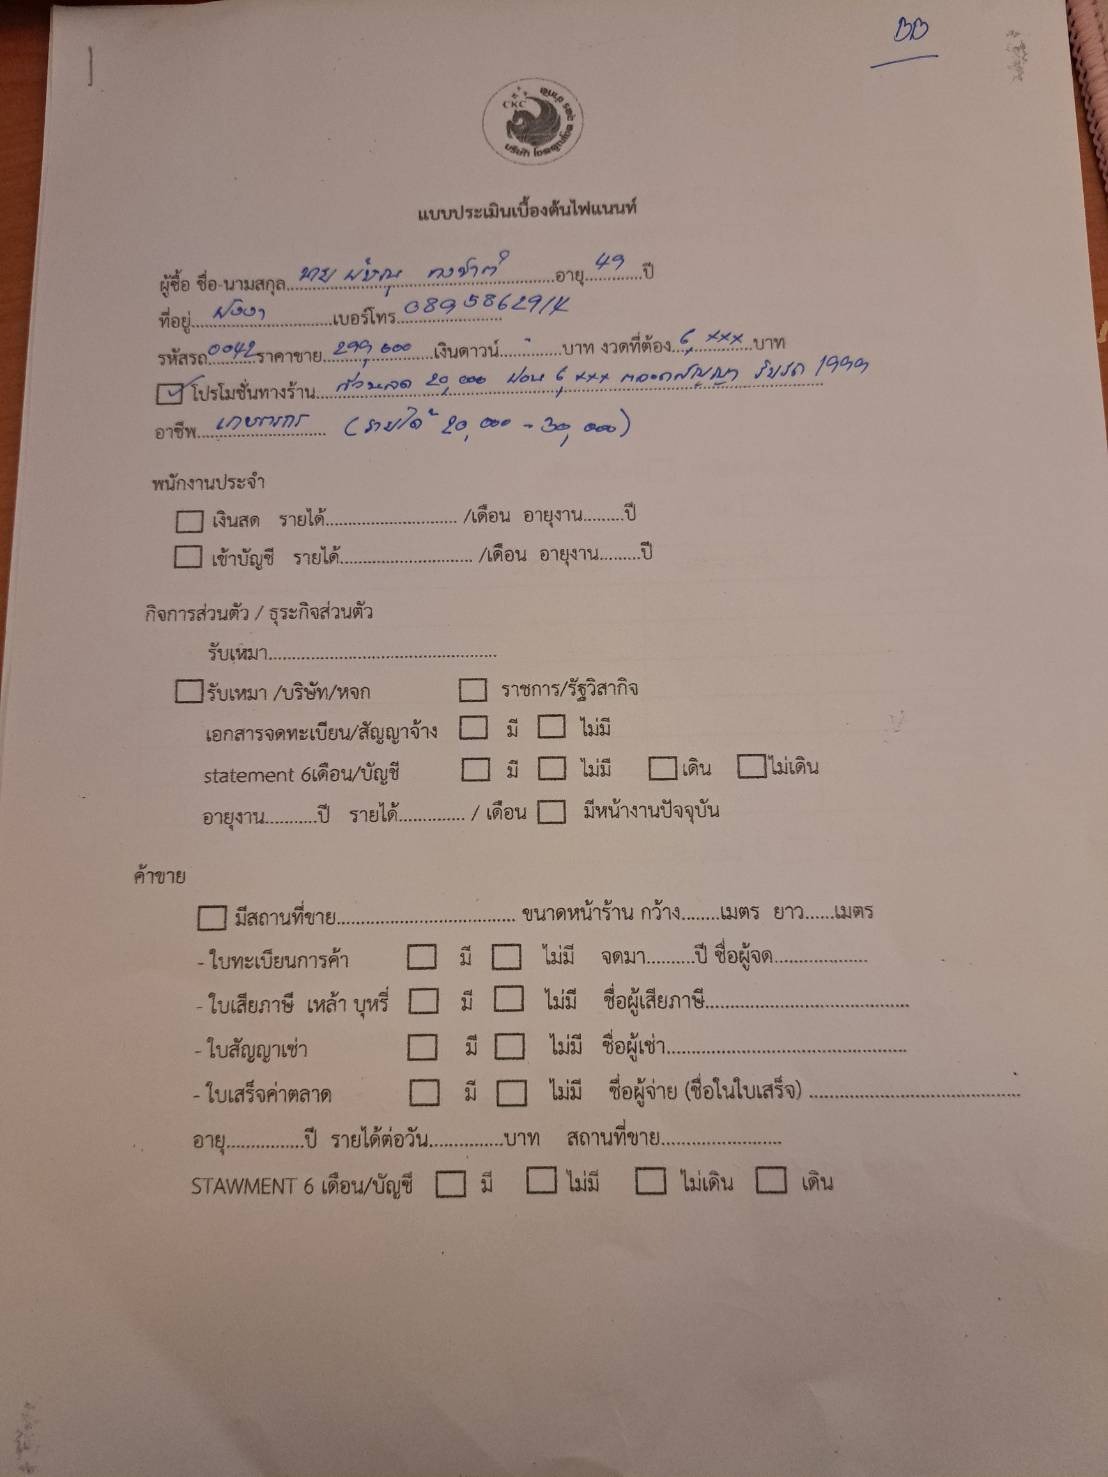 BB
CKC
แบบประเมินเบื้องต้นไฟแนนท์
ผู้ซื้อ ชื่อ-นามสกุล นาย อายุ 49 ปี
ที่อยู่ พังงา เบอร์โทร 0895862914
รหัสรถ 0042 ราคาขาย 299,000 เงินดาวน์ - บาท งวดที่ต้อง 6,xxx บาท
☑ โปรโมชั่นทางร้าน ส่วนลด 20,000 ผ่อน 6,xxx ตลอดสัญญา รับรถ 1999
อาชีพ เกษตรกร (รายได้ 20,000 - 30,000)
พนักงานประจำ
☐ เงินสด รายได้.............................. /เดือน อายุงาน.........ปี
☐ เข้าบัญชี รายได้.............................. /เดือน อายุงาน.........ปี
กิจการส่วนตัว / ธุระกิจส่วนตัว
รับเหมา....................................................
☐ รับเหมา /บริษัท/หจก ☐ ราชการ/รัฐวิสากิจ
เอกสารจดทะเบียน/สัญญาจ้าง ☐ มี ☐ ไม่มี
statement 6เดือน/บัญชี ☐ มี ☐ ไม่มี ☐ เดิน ☐ ไม่เดิน
อายุงาน............ปี รายได้............... / เดือน ☐ มีหน้างานปัจจุบัน
ค้าขาย
☐ มีสถานที่ขาย........................................ ขนาดหน้าร้าน กว้าง........เมตร ยาว......เมตร
- ใบทะเบียนการค้า ☐ มี ☐ ไม่มี จดมา..........ปี ชื่อผู้จด....................
- ใบเสียภาษี เหล้า บุหรี่ ☐ มี ☐ ไม่มี ชื่อผู้เสียภาษี............................................
- ใบสัญญาเช่า ☐ มี ☐ ไม่มี ชื่อผู้เช่า....................................................
- ใบเสร็จค่าตลาด ☐ มี ☐ ไม่มี ชื่อผู้จ่าย (ชื่อในใบเสร็จ) ..............................................
อายุ.................ปี รายได้ต่อวัน................บาท สถานที่ขาย..........................
STAWMENT 6 เดือน/บัญชี ☐ มี ☐ ไม่มี ☐ ไม่เดิน ☐ เดิน